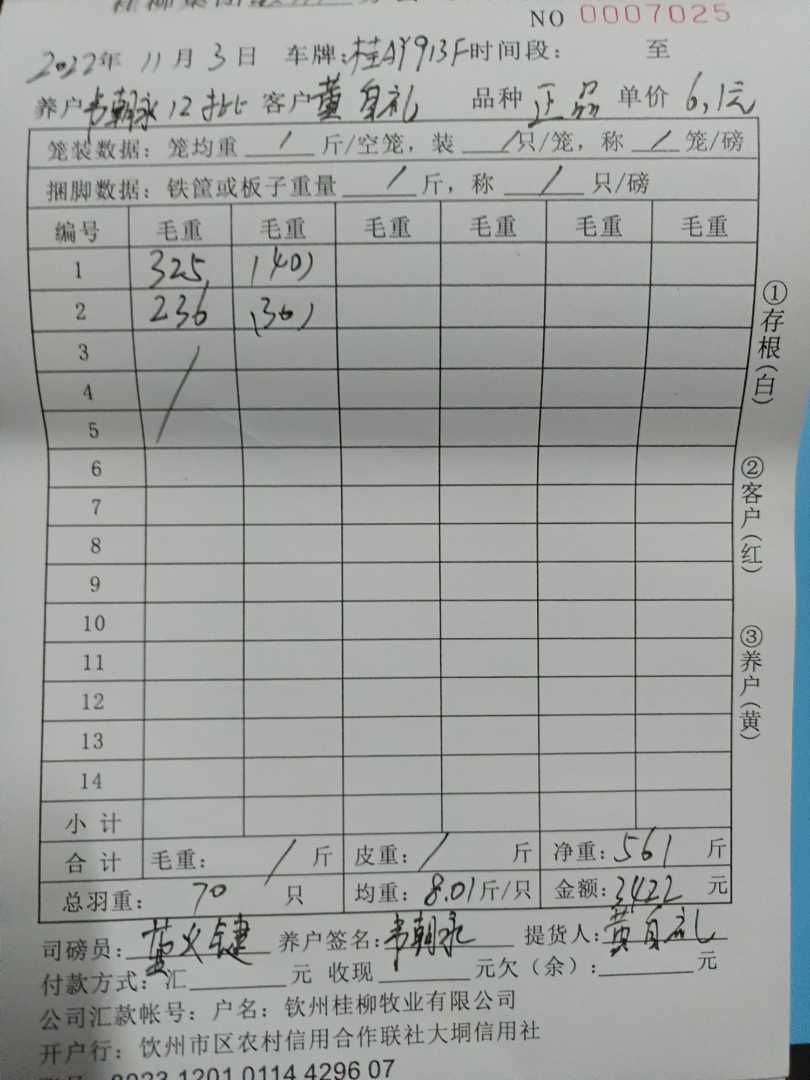 NO 0007025
2022年 11月 3日 车牌:桂AY913F时间段: 至
养户韦朝永12批 客户黄自礼 品种 正品 单价 6.1元
笼装数据: 笼均重 / 斤/空笼, 装 / 只/笼, 称 / 笼/磅
捆脚数据: 铁筐或板子重量 / 斤, 称 / 只/磅
编号 毛重 毛重 毛重 毛重 毛重 毛重
1 325, (40)
2 236 (30)
3
4
5
6
7
8
9
10
11
12
13
14
小计
合计 毛重: / 斤 皮重: / 斤 净重: 561 斤
总羽重: 70 只 均重: 8.01斤/只 金额: 3422 元
司磅员: 养户签名: 韦朝永 提货人: 黄自礼
付款方式: 汇 元 收现 元欠(余): 元
公司汇款帐号: 户名: 钦州桂柳牧业有限公司
开户行: 钦州市区农村信用合作联社大垌信用社
0023 1201 0114 4296 07
①存根(白)
②客户(红)
③养户(黄)